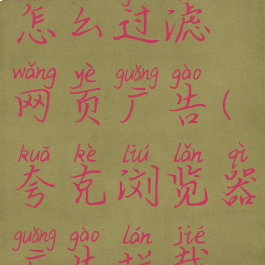 怎么过滤
wǎng yè guǎng gào
网页广告(
kuā kè liú lǎn qì
夸克浏览器
guǎng gào lán jié
广告拦截